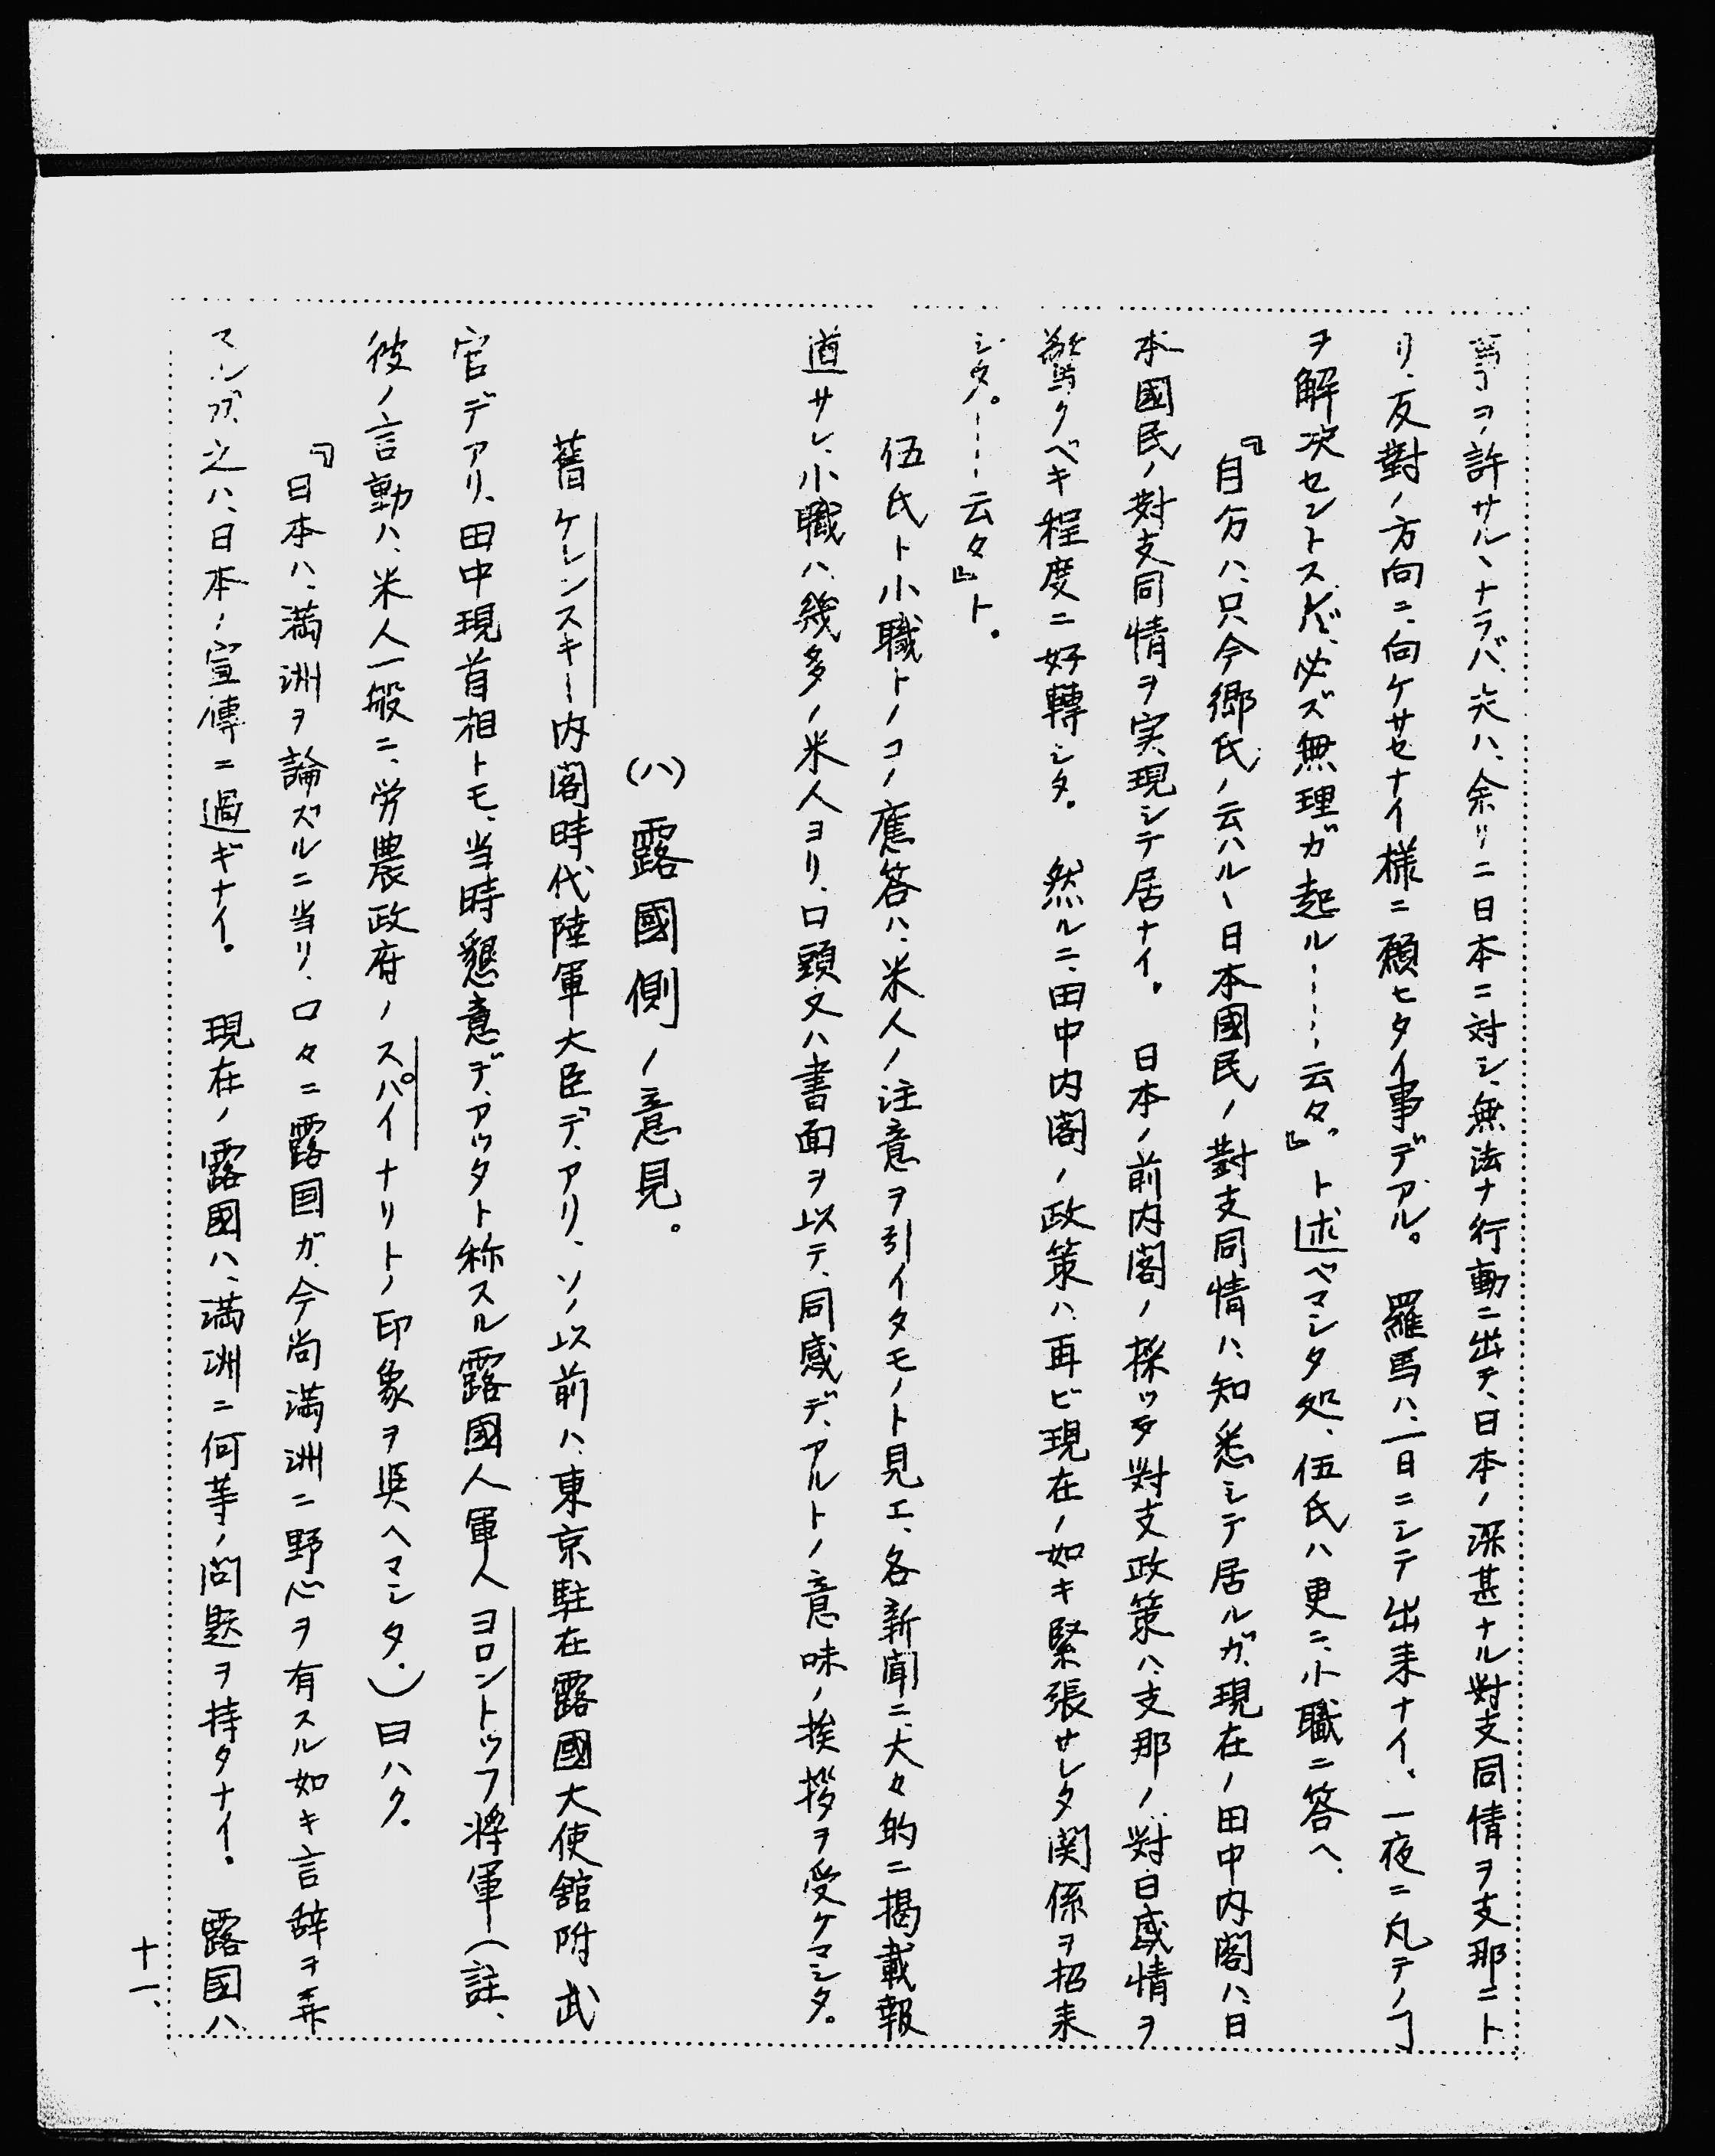 事ヲ許サルヽナラバ、夫ハ、余リニ日本ニ対シ、無法ナ行動ニ出デ、日本ノ深甚ナル對支同情ヲ支那ニト
リ、反對ノ方向ニ、向ケサセナイ様ニ願ヒタイ事デアル。 羅馬ハ、一日ニシテ出来ナイ、一夜ニ凡テノヿ
ヲ解決セントスレバ、必ズ無理ガ起ル————云々。』ト述ベマシタ処、伍氏ハ更ニ、小職ニ答ヘ、
『自分ハ、只今郷氏ノ云ハルヽ日本國民ノ對支同情ハ、知悉シテ居ルガ、現在ノ田中内閣ハ、日
本國民ノ對支同情ヲ実現シテ居ナイ。 日本ノ前内閣ノ採ッタ對支政策ハ、支那ノ對日感情ヲ
驚クベキ程度ニ好轉シタ。 然ルニ、田中内閣ノ政策ハ、再ビ現在ノ如キ緊張サレタ関係ヲ招来
シタ。————云々』ト。
伍氏ト小職トノコノ應答ハ、米人ノ注意ヲ引イタモノト見エ、各新聞ニ、大々的ニ掲載報
道サレ、小職ハ、幾多ノ米人ヨリ、口頭又ハ書面ヲ以テ、同感デアルトノ意味ノ挨拶ヲ受ケマシタ。
(ハ) 露國側ノ意見。
舊ケレンスキー内閣時代陸軍大臣デアリ、ソノ以前ハ、東京駐在露國大使舘附武
官デアリ、田中現首相トモ、当時懇意デアッタト称スル露國人軍人ヨロントッフ将軍(註、
彼ノ言動ハ、米人一般ニ、労農政府ノスパイナリトノ印象ヲ與ヘマシタ。)曰ハク。
『日本ハ、満洲ヲ論ズルニ当リ、口々ニ露国ガ、今尚満洲ニ野心ヲ有スル如キ言辞ヲ弄
スルガ、之ハ、日本ノ宣傳ニ過ギナイ。 現在ノ露國ハ、満洲ニ何等ノ問題ヲ持タナイ。 露国ハ
十一、